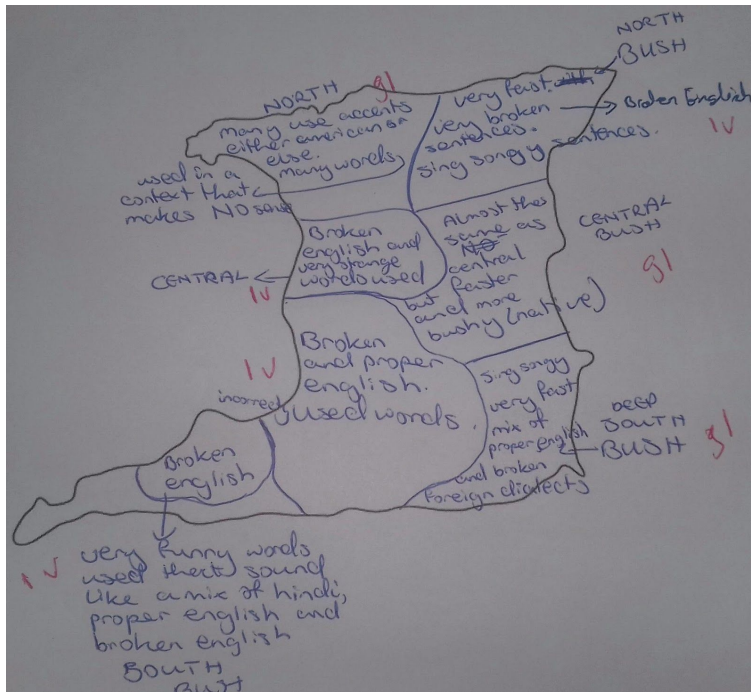 NORTH
gl
many use accents
either american or
else.
many words
used in a
context that
makes NO sense
very fast
very broken
sentences.
sing songy sentences.
NORTH
BUSH
Broken English
IV
Broken
english and
very strange
words used
CENTRAL
IV
Almost the
same as
central
but faster
and more
bushy (native)
CENTRAL
BUSH
gl
IV
Broken
and proper
english.
incorrect
used words.
sing songy
very fast
mix of
proper english
and broken
foreign dialects
DEEP
SOUTH
BUSH
gl
Broken
english
IV
very funny words
used that sound
like a mix of hindi,
proper english and
broken english
SOUTH
BUSH